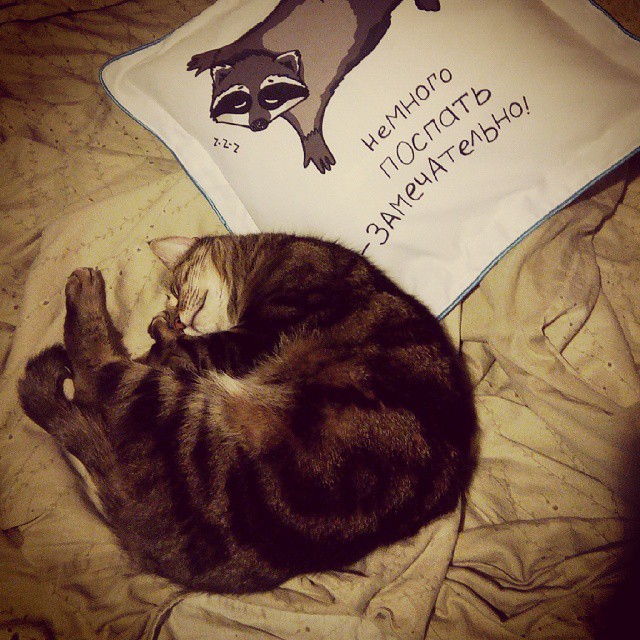 z-z-z
немного
поспать
-замечательно!